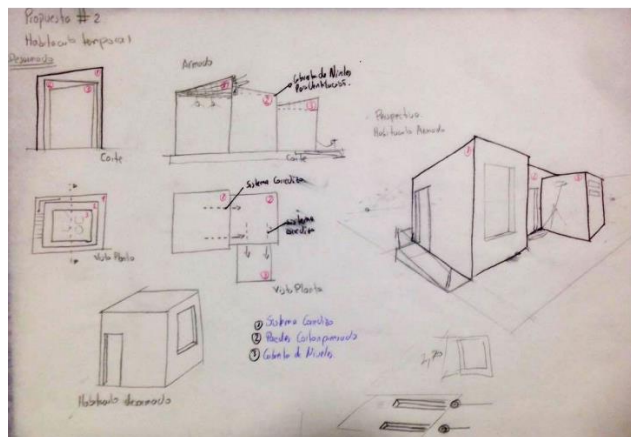 Propuesta # 2
Habitaculo temporal
Desarmado
Armado
Cubierta de Niveles
Por Ventilación.
Corte
Corte
Perspectiva
Habitaculo Armado
Sistema Corediza
Sistema
Vista Planta
Vista Planta
① Sistema Corediza
② Paredes
③ Cubierta de Niveles
Habitaculo desarmado
2,70